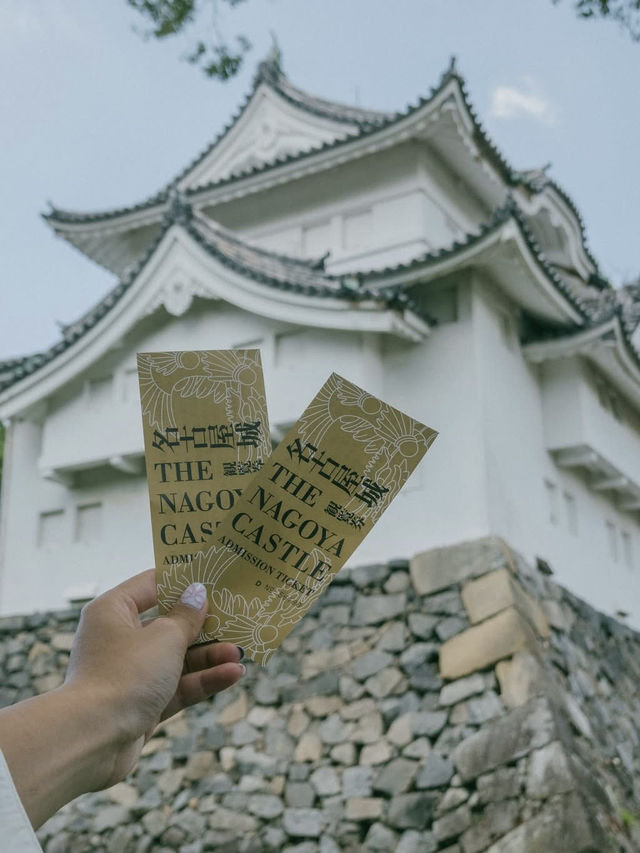 名古屋城
THE
NAGOYA
CAS
ADMI
名古屋城
観覧券
THE
NAGOYA
CASTLE
ADMISSION TICKET